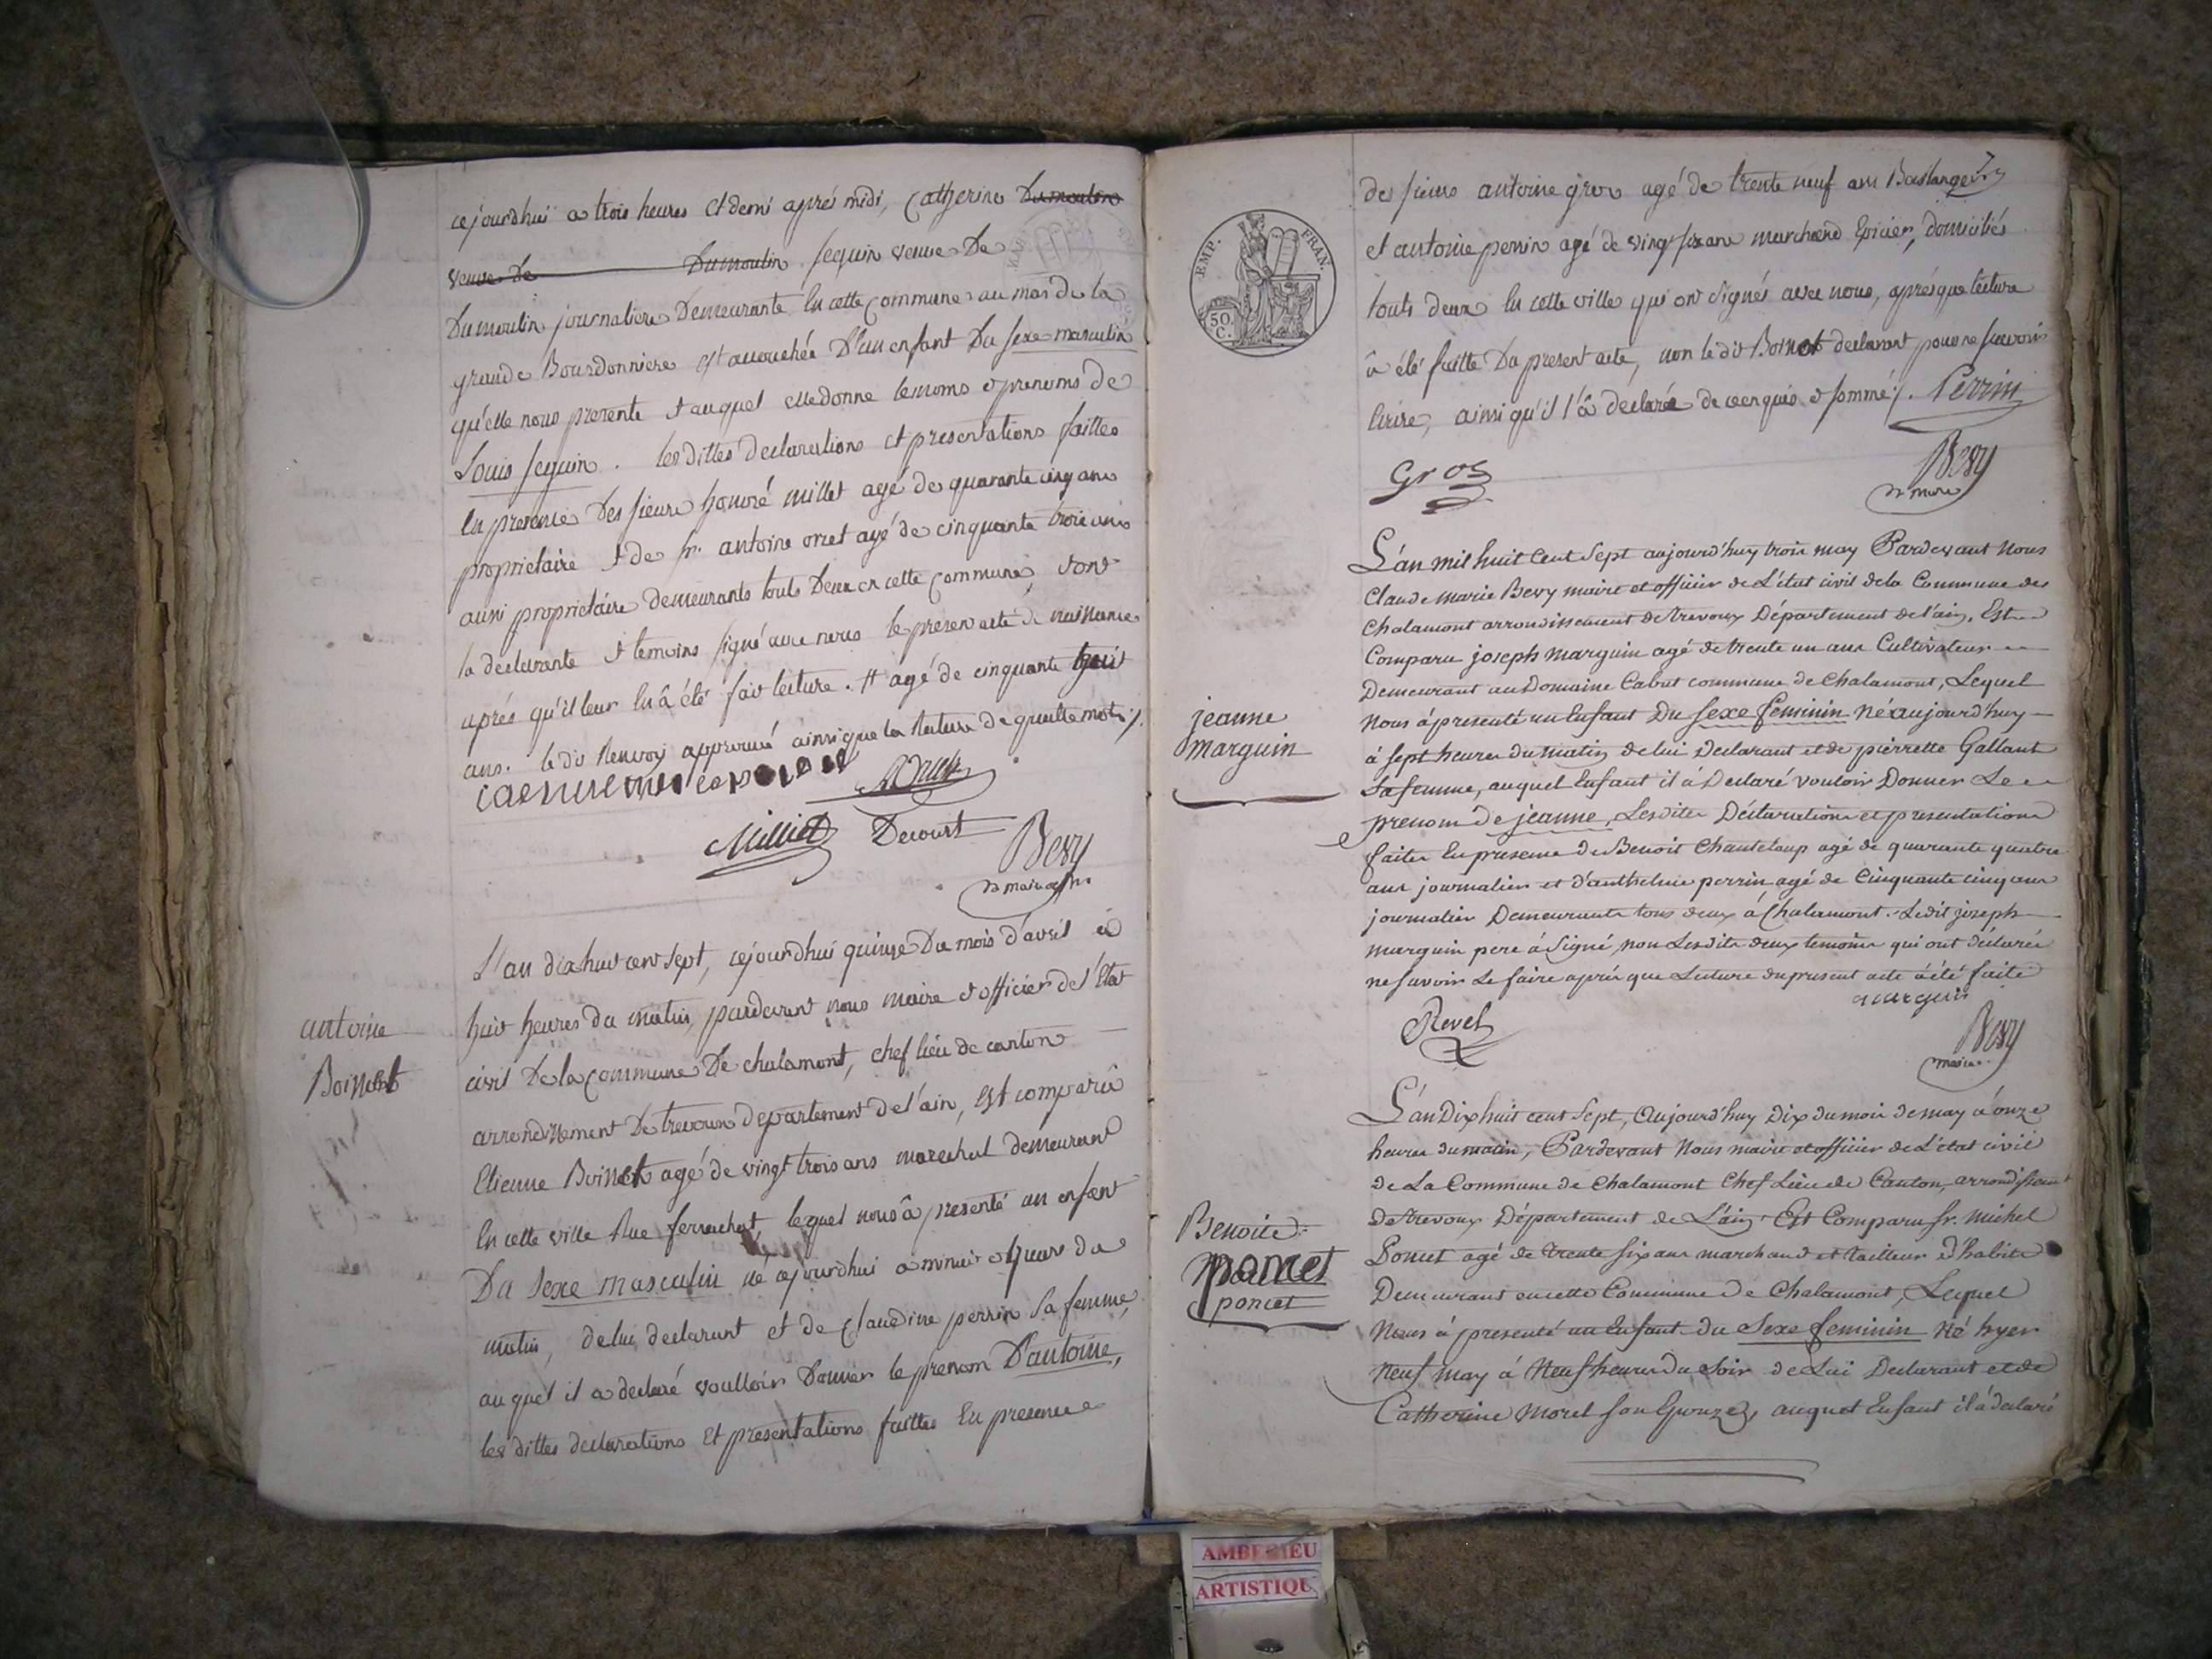 cejourdhui a trois heures et demi aprés midi, Catherine Dumoulin
veuve de Dumoulin seguin veuve De
Dumoulin journaliere Demeurante en cette Commune au mas de la
grande Bourdonniere est accouchée D'un enfant Du sexe masculin
qu'elle nous presente et auquel elle donne les noms et prenoms de
Louis seguin. les dittes declarations et presentations faittes
en presence Des sieurs honoré millet agé de quarante cinq ans
proprietaire et de sr. antoine orset agé de cinquante trois ans
aussi proprietaire demeurants touts Deux en cette Commune, et ont
la declarante et temoins signé avec nous le present acte de naissance
aprés qu'il leur en â été fait lecture. # agé de cinquante huit
ans. le dit Renvoy approuvé ainsi que la Rature de quattre mots ./.
Milliet Decourt
Bevy
antoine
Boinet
L'an dix huit cent sept, cejourdhui quinze Du mois d'avril à
huit heures du matin, pardevant nous maire et officier de l'Etat
civil De la Commune De chalamont, chef lieu de canton
arrondissement De trevoux departement de l'ain, est comparû
Etienne Boinet agé de vingt trois ans marechal demeurant
en cette ville Rue ferrachat, lequel nous â presenté un enfant
Du sexe masculin né cejourdhui a minuit et quart du
matin, de lui declarant et de Claudine perrin sa femme,
auquel il a declaré voulloir Donner le prenom D'antoine,
les dittes declarations et presentations faittes En presence
EMP. FRAN.
50 C.
des sieurs antoine gros agé de trente neuf ans Boulanger
et antoine perrin agé de vingt six ans marchand Epicier, domiciliés
touts deux en cette ville qui ont signés avec nous, aprés que lecture
â été faitte Du present acte, non le dit Boinet declarant pour ne scavoir
Ecrire, ainsi qu'il l'â declaré de ce enquis et sommé ./. Perrin
Gros
Bevy
maire
jeanne
marguin
L'an mil huit Cent Sept aujourd'huy trois may Pardevant Nous
Claude Marie Bevy maire et officier de L'état civil de la Commune des
Chalamont arrondissement de trevoux Département de l'ain, Est
Comparu joseph marguin agé de trente un ans Cultivateur
Demeurant au Domaine Cabut commune de Chalamont, Lequel
Nous á presenté un Enfant Du sexe feminin Né aujourd'huy
á sept heures du matin de lui Declarant et de pierrette Gallant
sa femme, auquel Enfant il á Declaré vouloir Donner Le
prenom de jeanne, Lesdites Déclarations et presentations
faites En presence de Benoit Chanteloup agé de quarante quatre
ans journalier et d'anthelme perrin agé de Cinquante cinq ans
journalier Demeurants tous deux á Chalamont. Ledit joseph
marguin pere á Signé, non Lesdits deux temoins qui ont déclarés
ne savoir Le faire aprés que Lecture du present acte á été faite
marguin
Revel
Bevy
maire
Benoite
poncet
poncet
L'an Dix huit cent Sept, Aujourd'huy Dix du mois de may á onze
heures du matin, Pardevant Nous maire et officier de L'état civil
de La Commune de Chalamont Chef Lieu de Canton, arrondissent
De trevoux Département de L'ain Est Comparu sr. Michel
Poncet agé de trente six ans marchand et tailleur d'habits
Demeurant en cette Commune De Chalamont, Lequel
Nous á presenté un Enfant du Sexe feminin Né hyer
Neuf may á Neuf heures Du Soir de Lui Declarant et de
Catherine Morel son Epouze, auquel Enfant il á declaré
AMBERIEU
ARTISTIQUE